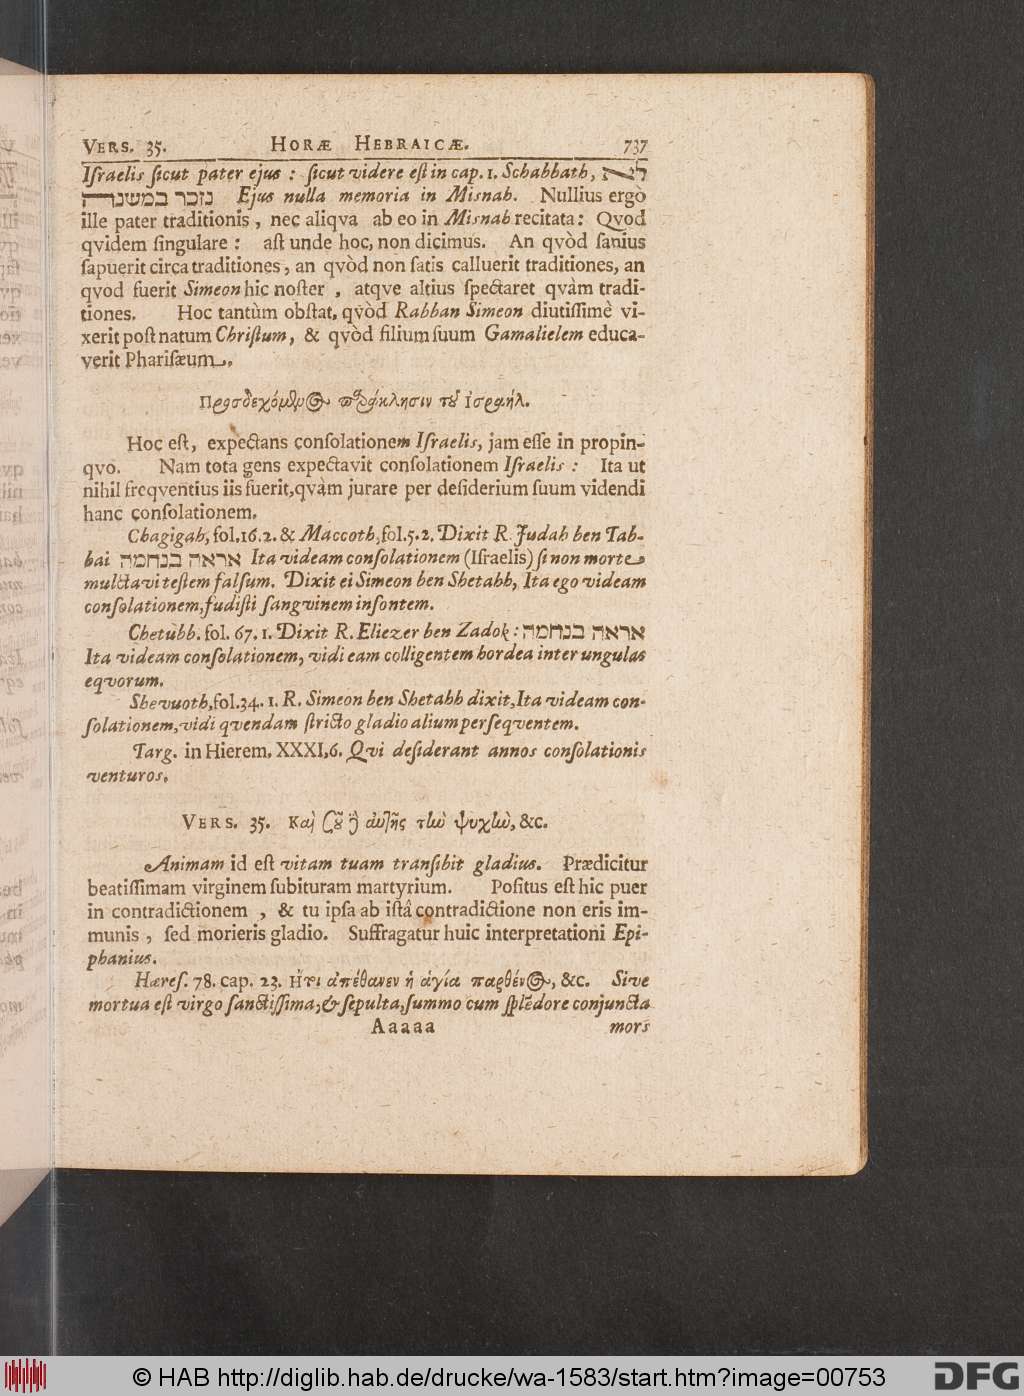 VERS. 35. HORÆ HEBRAICÆ. 737
Iſraelis ſicut pater ejus : ſicut videre eſt in cap. 1. Schabbath, לא
נזכר במשנה Ejus nulla memoria in Misnah. Nullius ergò
ille pater traditionis, nec aliqva ab eo in Misnah recitata: Qvod
qvidem ſingulare : aſt unde hoc, non dicimus. An qvòd ſanius
ſapuerit circa traditiones, an qvòd non ſatis calluerit traditiones, an
qvod fuerit Simeon hic noſter , atqve altius ſpectaret qvàm tradi-
tiones. Hoc tantùm obſtat, qvòd Rabban Simeon diutiſſimè vi-
xerit poſt natum Chriſtum, & qvòd filium ſuum Gamalielem educa-
verit Phariſæum.
Προσδεχόμεν⊙ παράκλησιν τȣ͂ Ἰσραήλ.
Hoc eſt, expectans conſolationem Iſraelis, jam eſſe in propin-
qvo. Nam tota gens expectavit conſolationem Iſraelis : Ita ut
nihil freqventius iis fuerit, qvàm jurare per deſiderium ſuum videndi
hanc conſolationem.
Chagigah, fol. 16. 2. & Maccoth, fol. 5. 2. Dixit R. Judah ben Tab-
bai אראה בנחמה Ita videam conſolationem (Iſraelis) ſi non morte
mulctavi teſtem falſum. Dixit ei Simeon ben Shetahh, Ita ego videam
conſolationem, fudiſti ſangvinem inſontem.
Chetubb. fol. 67. 1. Dixit R. Eliezer ben Zadok : אראה בנחמה
Ita videam conſolationem, vidi eam colligentem hordea inter ungulas
eqvorum.
Shevuoth, fol. 34. 1. R. Simeon ben Shetahh dixit, Ita videam con-
ſolationem, vidi qvendam ſtricto gladio alium perſeqventem.
Targ. in Hierem. XXXI, 6. Qvi deſiderant annos conſolationis
venturos.
VERS. 35. Καὶ σȣ͂ ἢ αὐτῆς τὴν ψυχὴν, &c.
Animam id eſt vitam tuam tranſibit gladius. Prædicitur
beatiſſimam virginem ſubituram martyrium. Poſitus eſt hic puer
in contradictionem , & tu ipſa ab iſtâ contradictione non eris im-
munis , ſed morieris gladio. Suffragatur huic interpretationi Epi-
phanius.
Hæreſ. 78. cap. 23. Ἤτι ἀπέθανεν ἡ ἁγία παρθέν⊙, &c. Sive
mortua eſt virgo ſanctiſſima, & ſepulta, ſummo cum ſplẽdore conjuncta
Aaaaa mors
© HAB http://diglib.hab.de/drucke/wa-1583/start.htm?image=00753 DFG